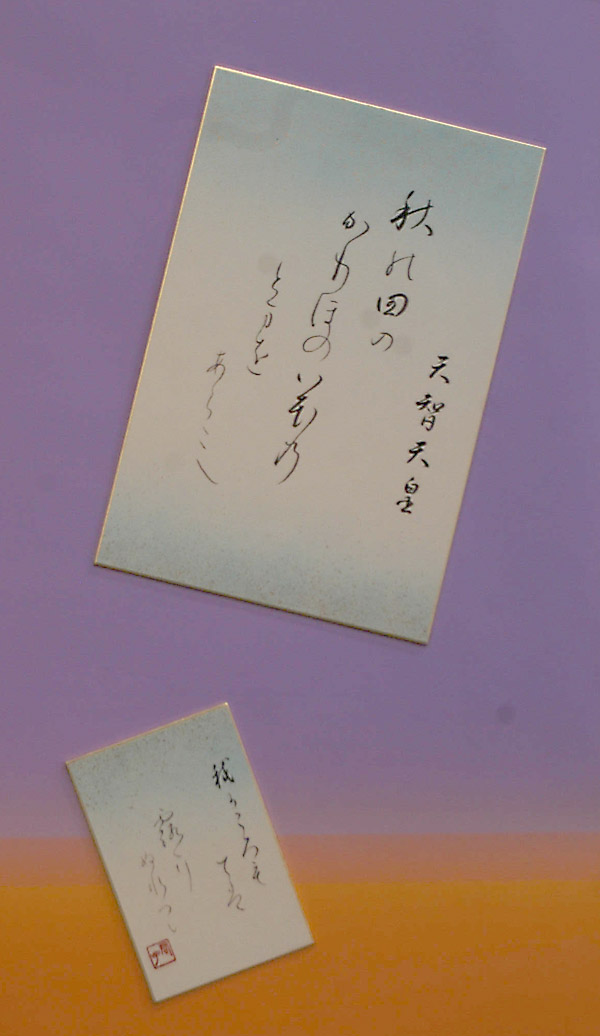 天智天皇
秋の田の
かりほの庵の
とまを
あらみ
我かころも
ては
露に
ぬれつつ